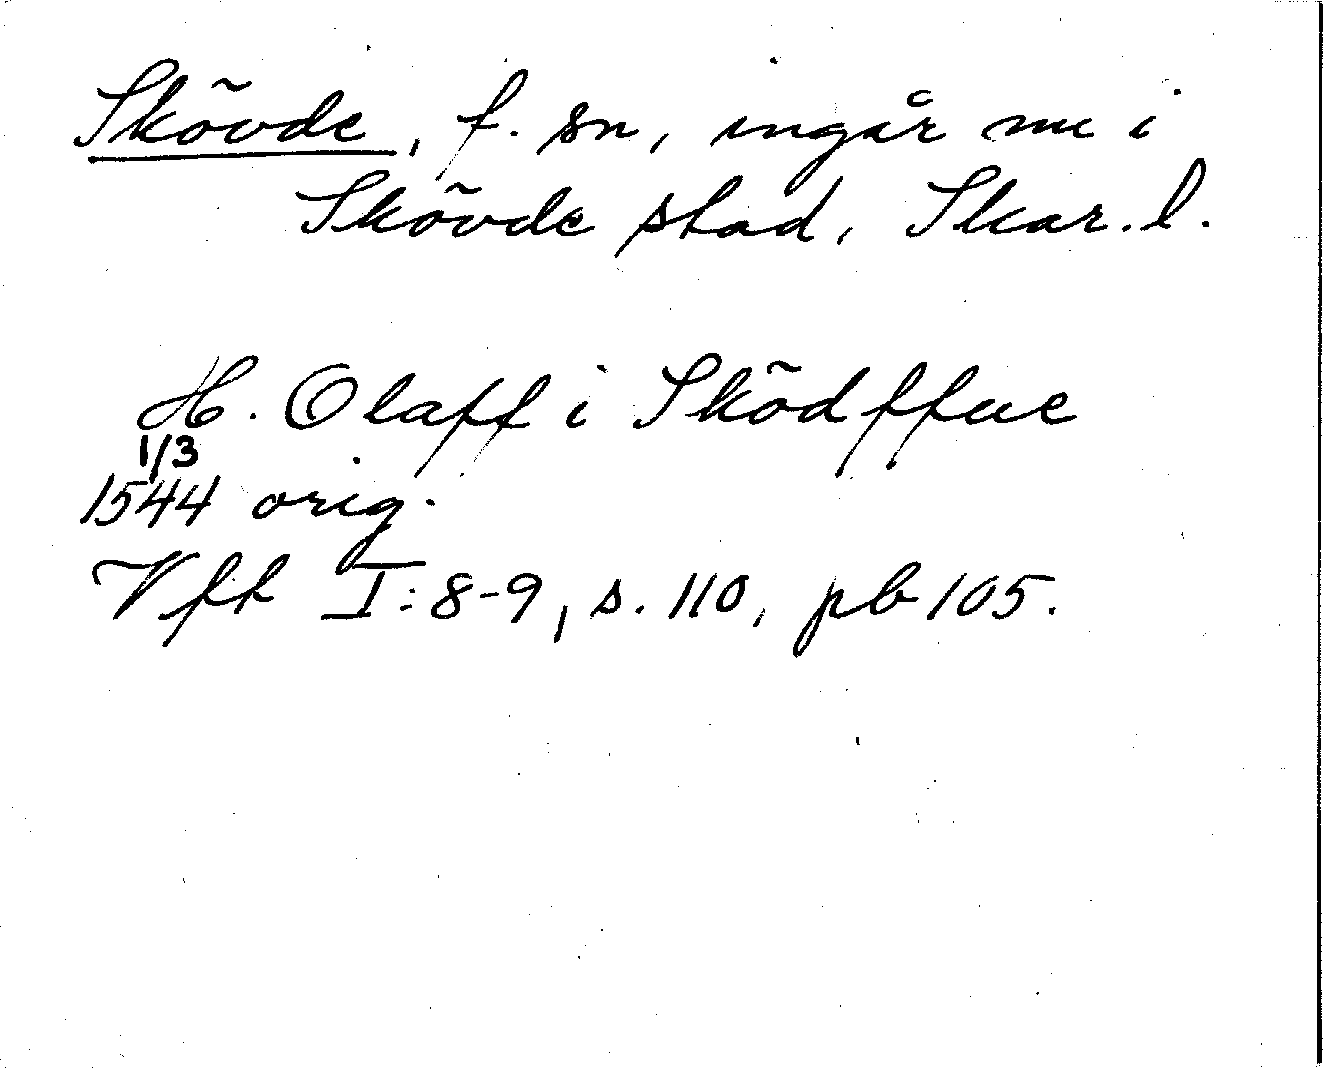 Skövde, f. sn, ingår nu i
Skövde stad, Skar. l.
H. Olaff i Sködffue
1/3
1544 orig.
Vfft I:8-9, s. 110, pb 105.